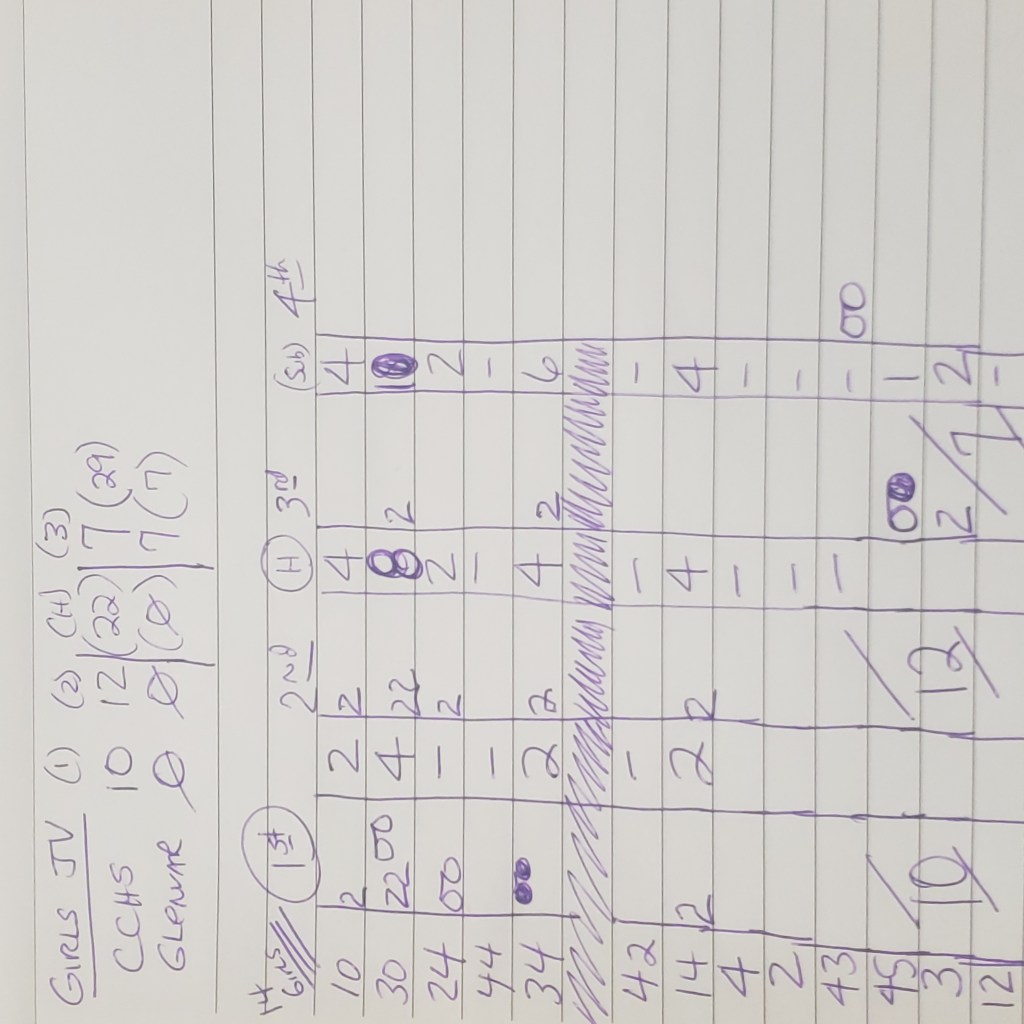 GIRLS JV (1) (2) (H) (3)
CCHS 10 12 (22) 7 (29)
GLENVAR Ø Ø (Ø) 7 (7)
# GIRLS 1st 2nd (H) 3rd (Sub) 4th
10 2 2 2 4 4
30 22 00 4 22 8 2 10
24 00 - 2 2 2
44 - - -
34 00 2 2 4 2 6
42 - - -
14 2 2 2 4 4
4 - -
2 - -
43 - - 00
45 / / 00 1
3 10 12 2 / 7 2
12 / / / -